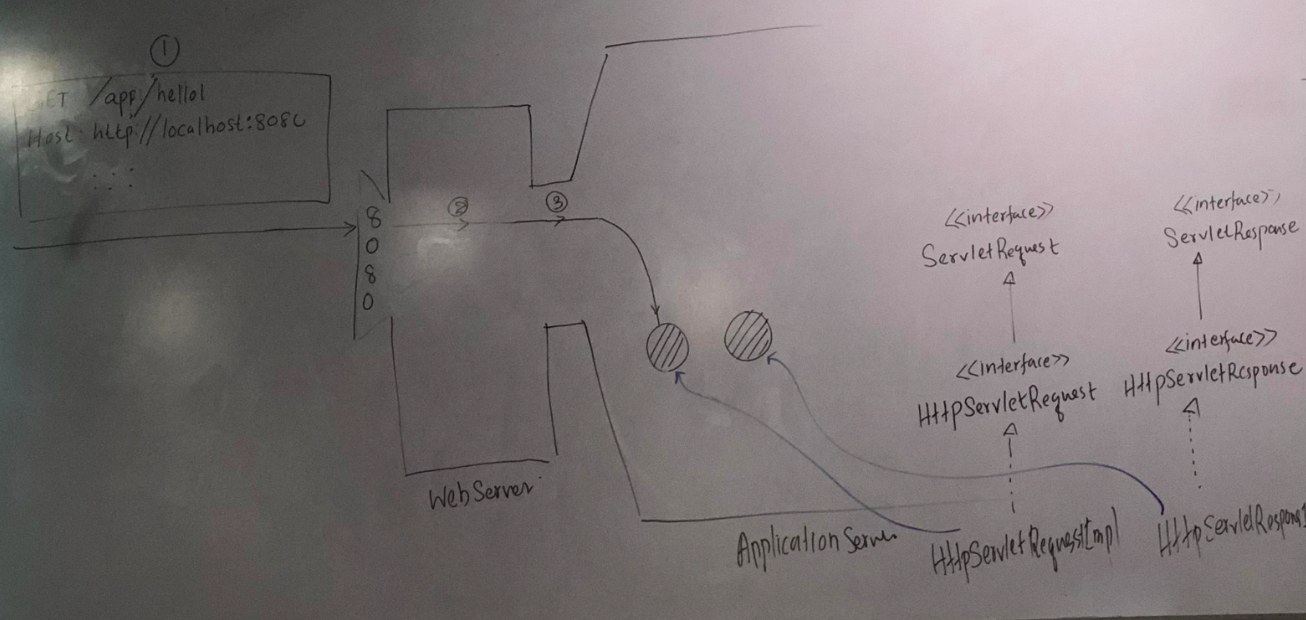 ①
GET /app/hello1
Host: http://localhost:8080
:::
8
0
8
0
②
③
WebServer
Application Server
<<interface>>
ServletRequest
<<interface>>
HttpServletRequest
HttpServletRequestImpl
<<interface>>
ServletResponse
<<interface>>
HttpServletResponse